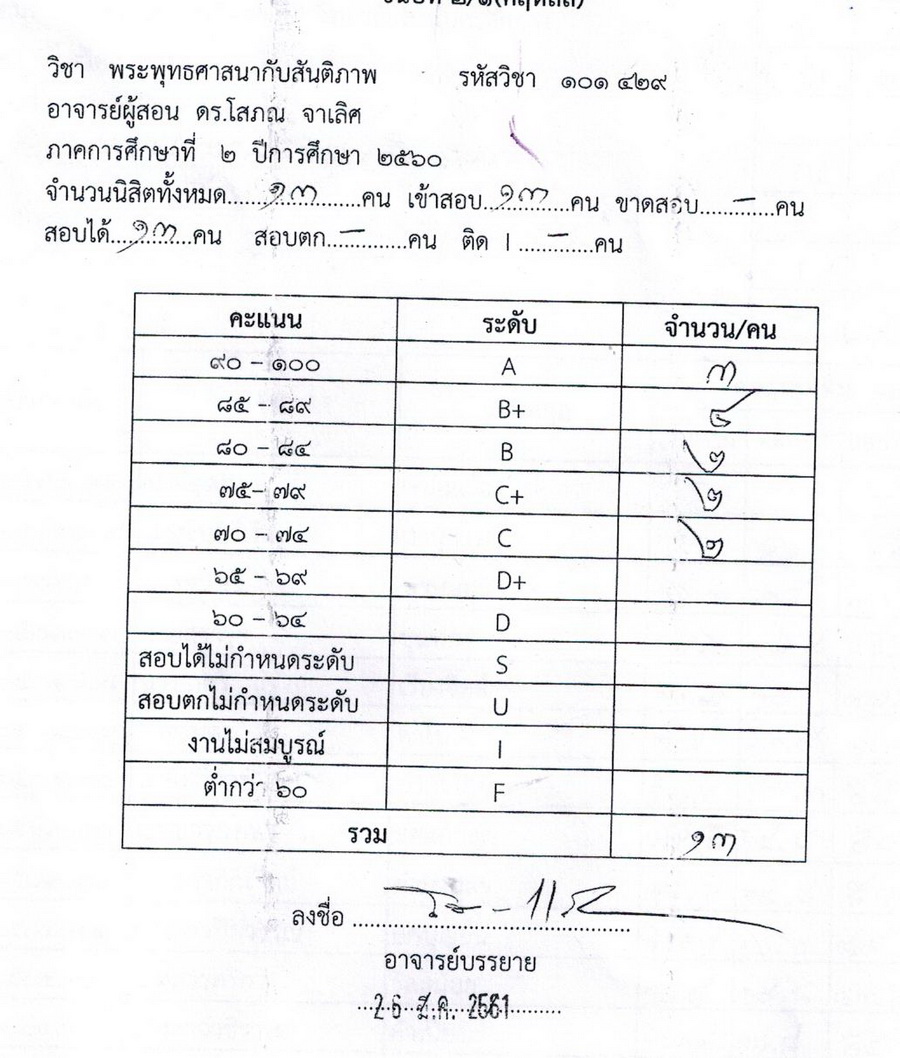 วิชา พระพุทธศาสนากับสันติภาพ รหัสวิชา ๑๐๑ ๔๒๙
อาจารย์ผู้สอน ดร.โสภณ จาเลิศ
ภาคการศึกษาที่ ๒ ปีการศึกษา ๒๕๖๐
จำนวนนิสิตทั้งหมด.....๑๓.....คน เข้าสอบ..๑๓...คน ขาดสอบ....–....คน
สอบได้...๑๓...คน สอบตก..–......คน ติด I ...–...คน
คะแนน ระดับ จำนวน/คน
๙๐ – ๑๐๐ A ๓
๘๕ – ๘๙ B+ ๔
๘๐ – ๘๔ B ๒
๗๕– ๗๙ C+ ๒
๗๐ – ๗๔ C ๒
๖๕ – ๖๙ D+
๖๐ – ๖๔ D
สอบได้ไม่กำหนดระดับ S
สอบตกไม่กำหนดระดับ U
งานไม่สมบูรณ์ I
ต่ำกว่า ๖๐ F
รวม ๑๓
ลงชื่อ
อาจารย์บรรยาย
26 มี.ค. 2561